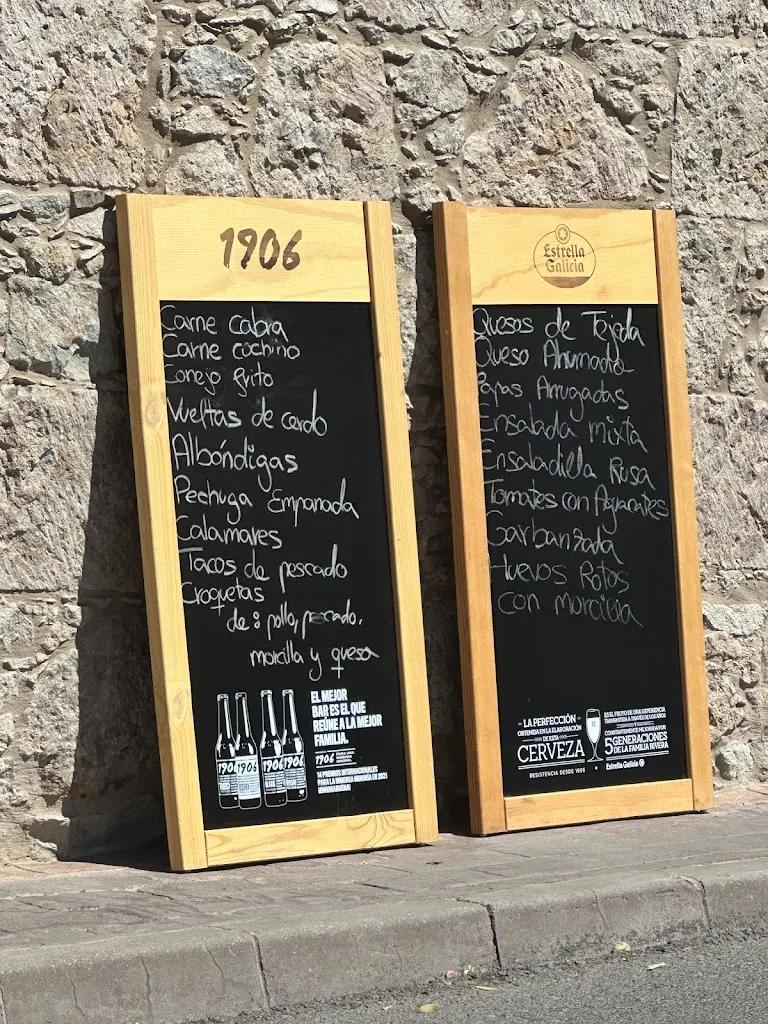 1906
Carne cabra
Carne cochino
Conejo frito
Vueltas de cerdo
Albóndigas
Pechuga Empanada
Calamares
Tacos de pescado
Croquetas
de: pollo, pescado,
morcilla y queso
1906 1906 1906 1906
EL MEJOR
BAR ES EL QUE
REÚNE A LA MEJOR
FAMILIA.
1906
14 PREMIOS INTERNACIONALES
Estrella
Galicia
Quesos de Tejeda
Queso Ahumado
Papas Arrugadas
Ensalada mixta
Ensaladilla Rusa
Tomates con Aguacates
Garbanzada
Huevos Rotos
con morcilla
LA PERFECCIÓN
OBTENIDA EN LA ELABORACIÓN
DE ESTA
CERVEZA
RESISTENCIA DESDE 1906
ES EL FRUTO DE UNA EXPERIENCIA
TRANSMITIDA A TRAVÉS DE LOS AÑOS
Y
CONSTANTEMENTE MEJORADA POR
5 GENERACIONES
DE LA FAMILIA RIVERA
Estrella Galicia